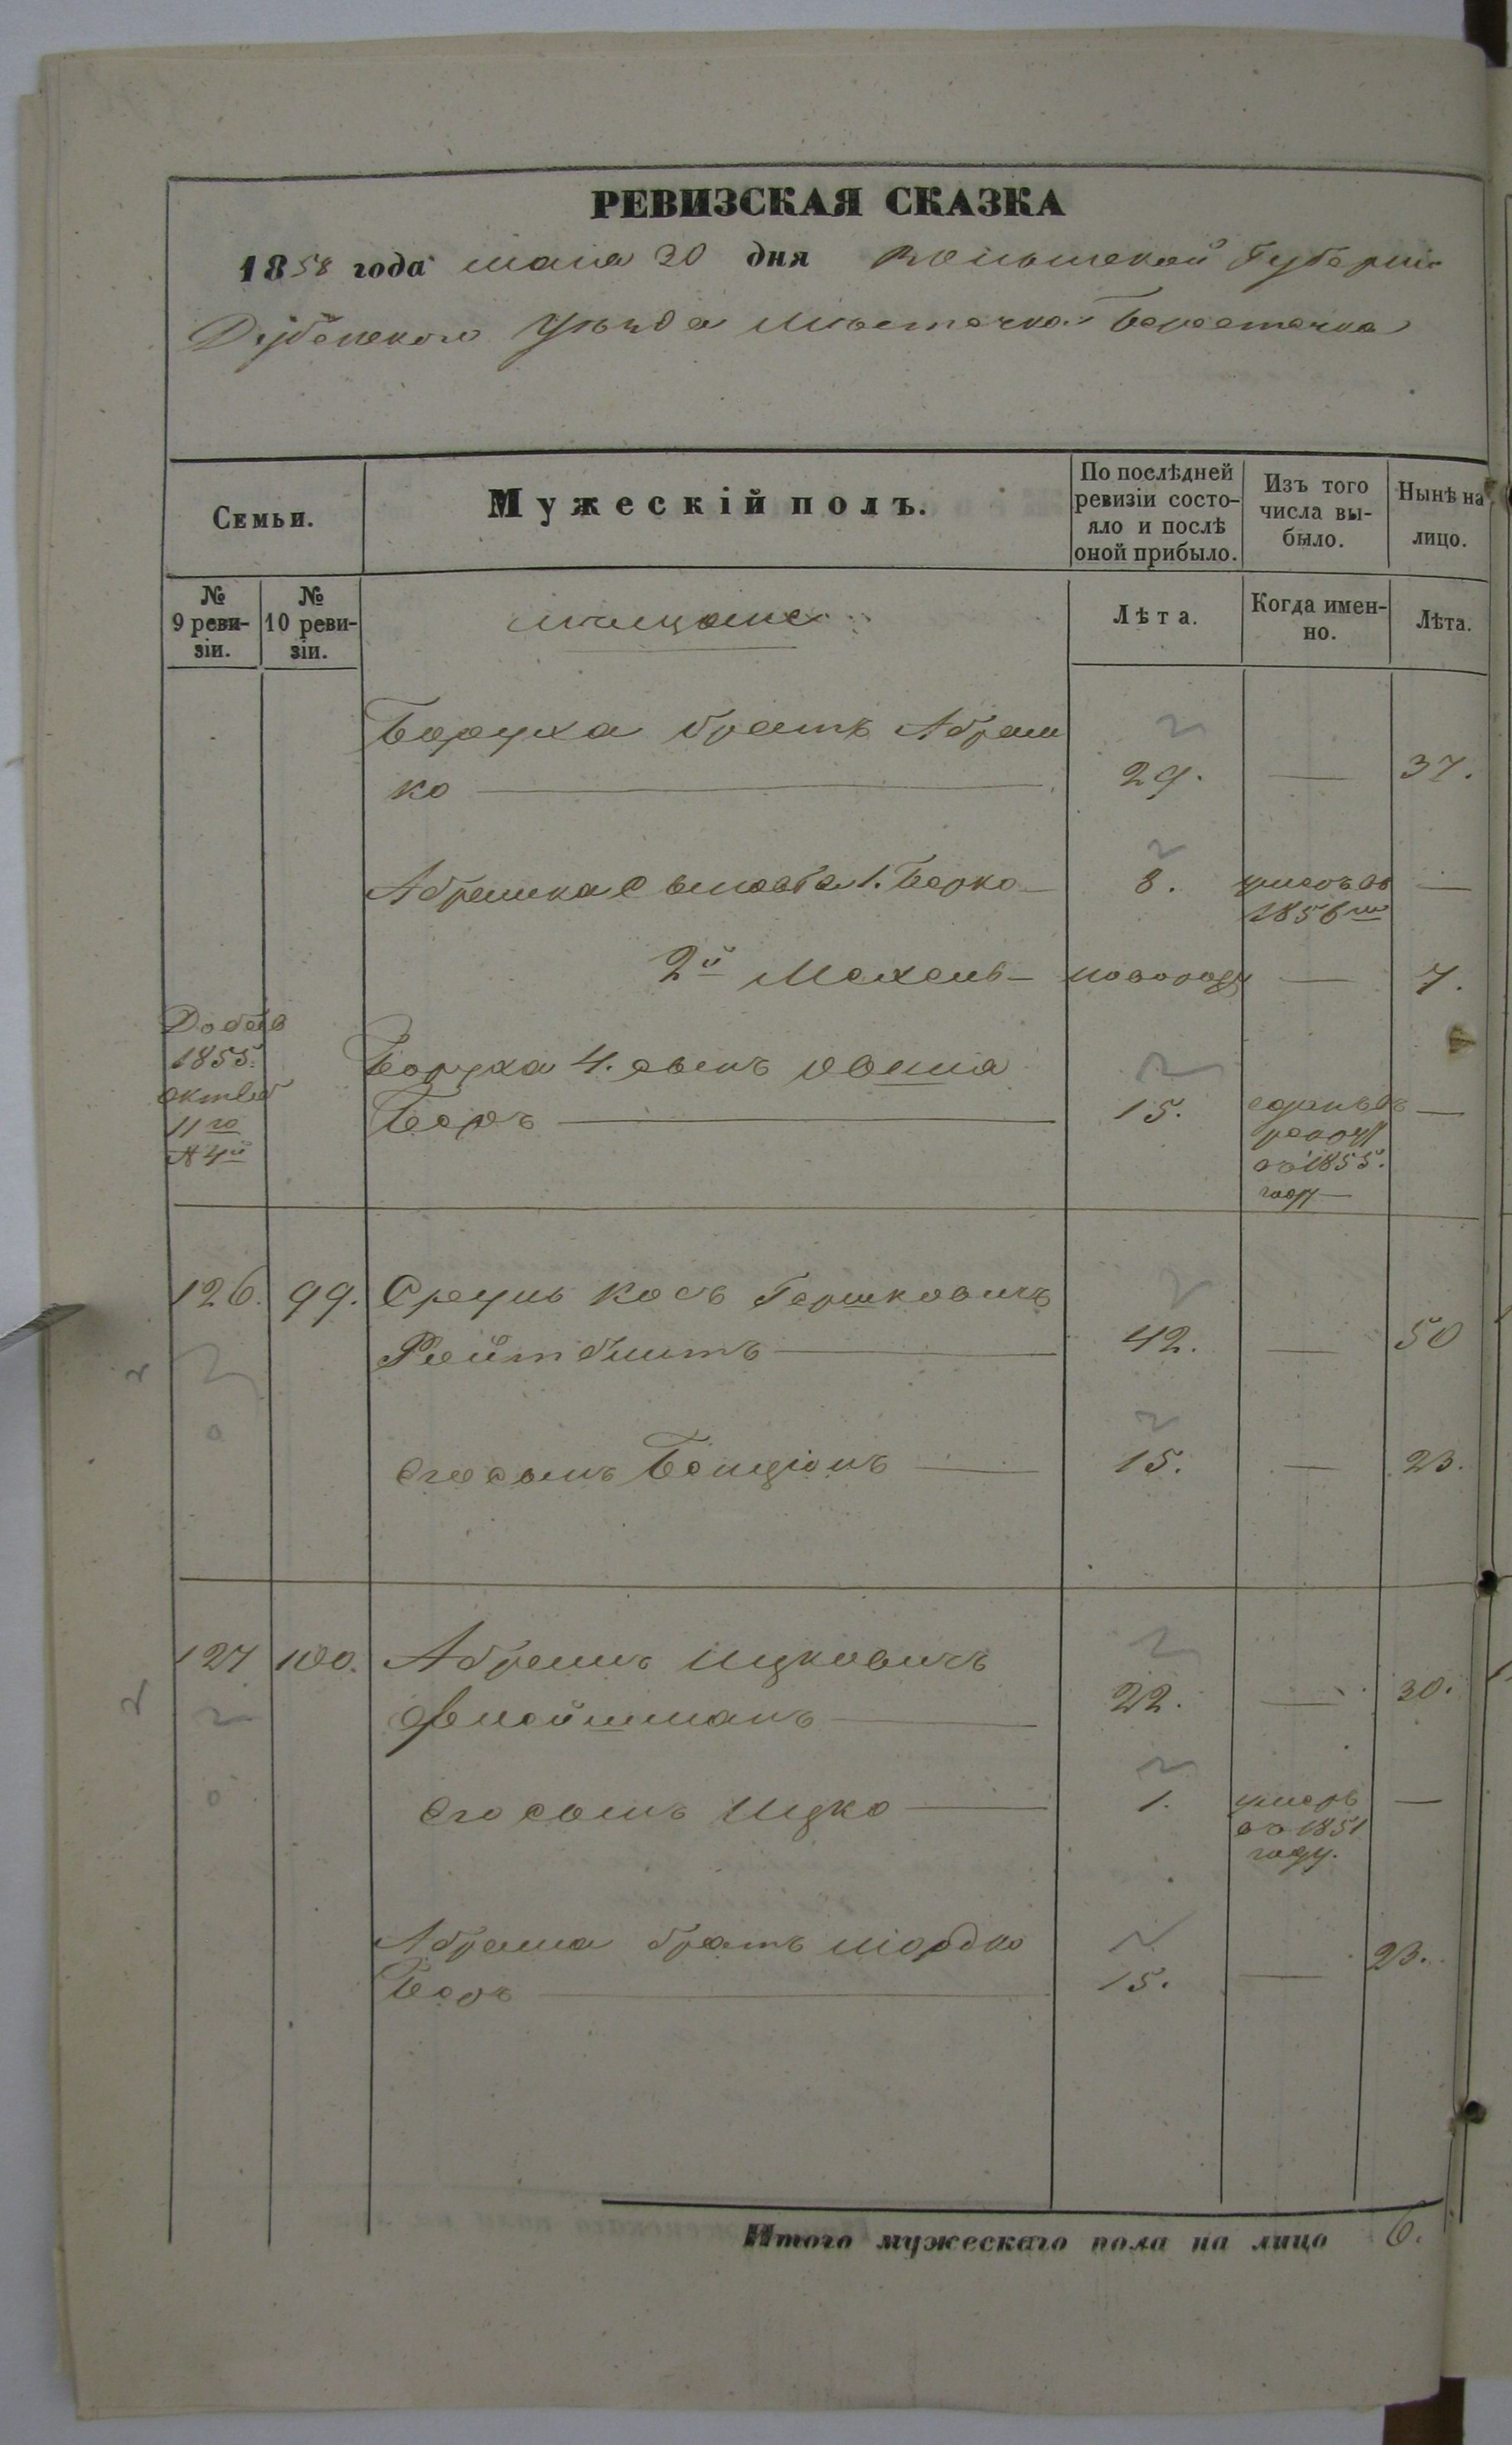 РЕВИЗСКАЯ СКАЗКА
1858 года мая 30 дня Волынской Губерніи
Дубенскаго Уѣзда Мѣстечка Берестечка
Семьи.
Мужескій полъ.
По послѣдней ревизіи состояло и послѣ оной прибыло.
Изъ того числа выбыло.
Нынѣ на лицо.
№ 9 ревизіи.
№ 10 ревизіи.
мещане
Лѣта.
Когда именно.
Лѣта.
Боруха братъ Абрам
ко 29. — 37.
Абрамка сыновья 1. Берко 8. умеръ въ —
1856 м
2й Мехель новорожд — 7.
Добав
1855.
октяб
11го
№ 4й
Боруха 4. сынъ
Беръ 15. сданъ въ —
рекруты
въ 1855.
году
126. 99. Сруль Гершковичъ
42. — 50
его сынъ Бенціонъ 15. — 23.
127 100. Абрамъ Ицковичъ
Флейшманъ 22. — 30.
его сынъ Ицко 1. умеръ —
въ 1851
году.
Абрама братъ Мордко
Беръ 15. — 23.
Итого мужескаго пола на лицо 6.